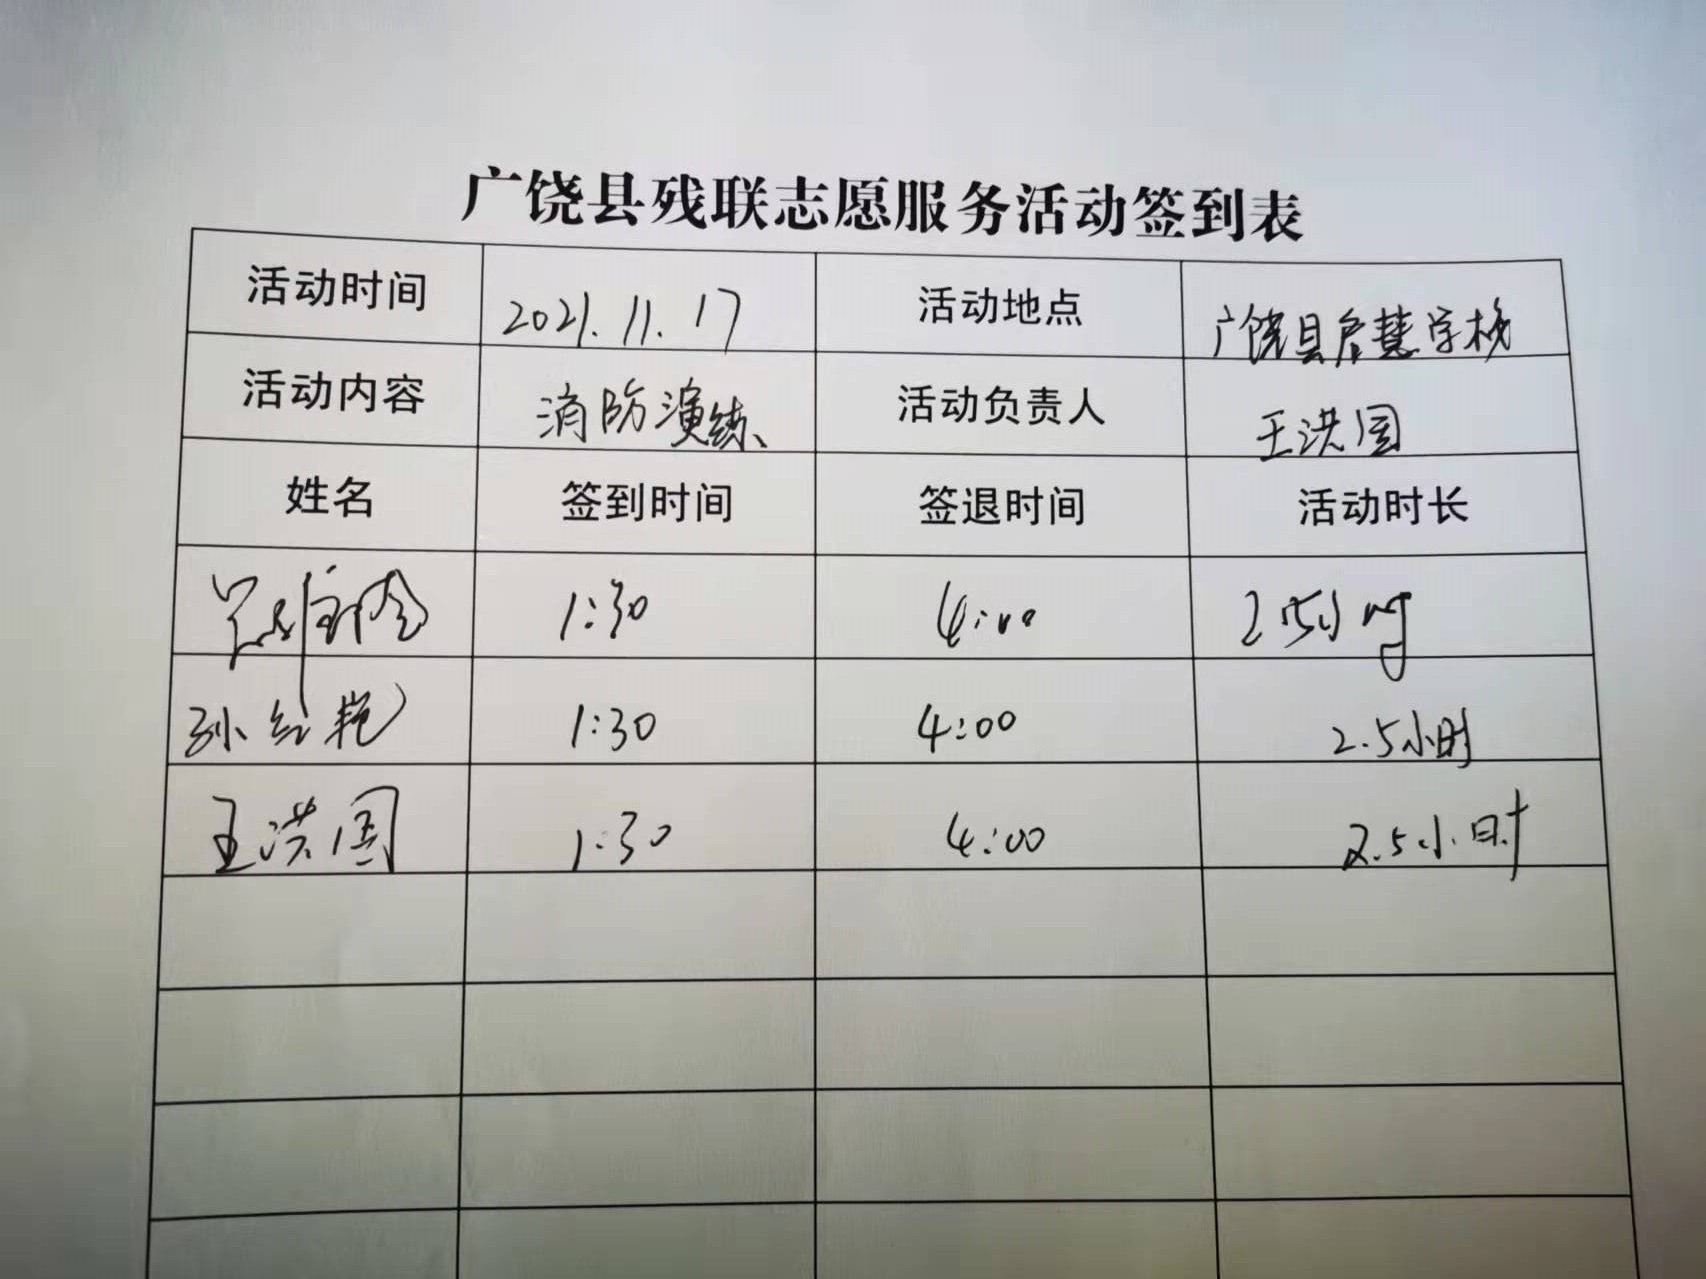 广饶县残联志愿服务活动签到表
活动时间 2021.11.17 活动地点 广饶县启慧学校
活动内容 消防演练 活动负责人 王洪国
姓名 签到时间 签退时间 活动时长
1:30 4:00 2.5小时
孙红艳 1:30 4:00 2.5小时
王洪国 1:30 4:00 2.5小时